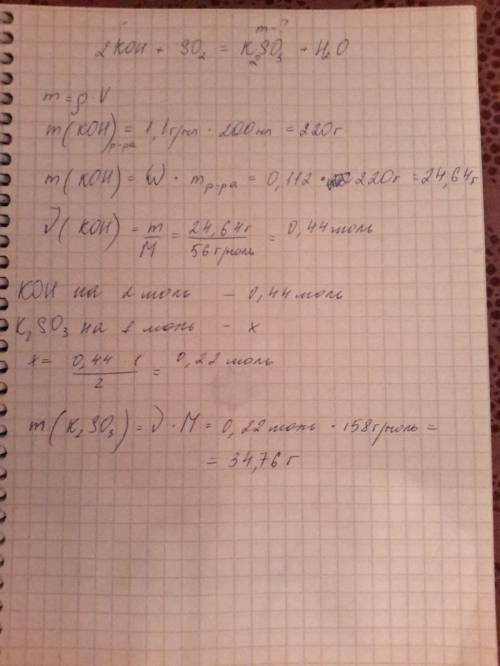 m-?
2KOH + SO₂ = K₂SO₃ + H₂O
m = ρ·V
m(KOH)р-ра = 1,1г/мл · 200мл = 220г
m(KOH) = ω · mр-ра = 0,112 · 220г = 24,64г
ν(KOH) = m/M = 24,64г/56г/моль = 0,44моль
KOH на 2 моль – 0,44моль
K₂SO₃ на 1 моль – x
x = 0,44 1/2 = 0,22 моль
m(K₂SO₃) = ν·M = 0,22моль · 158г/моль =
= 34,76 г